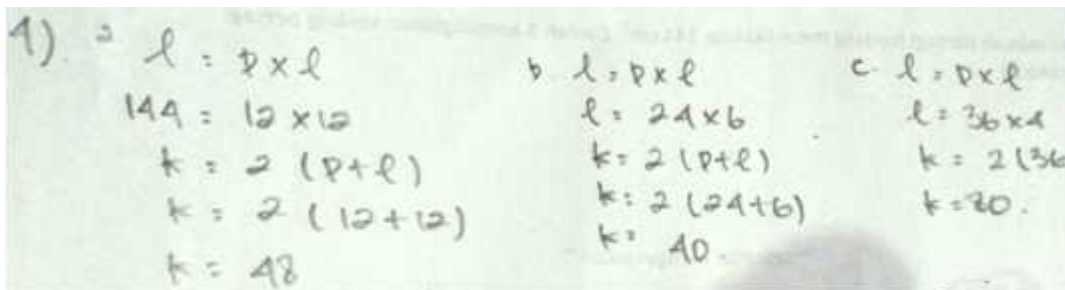 4) a l = p x l
144 = 12 x 12
k = 2 (p+l)
k = 2 (12+12)
k = 48
b. l = p x l
l = 24x6
k = 2 (p+l)
k = 2 (24+6)
k = 40
c. l = p x l
l = 36 x 4
k = 2 (36
k = 80.